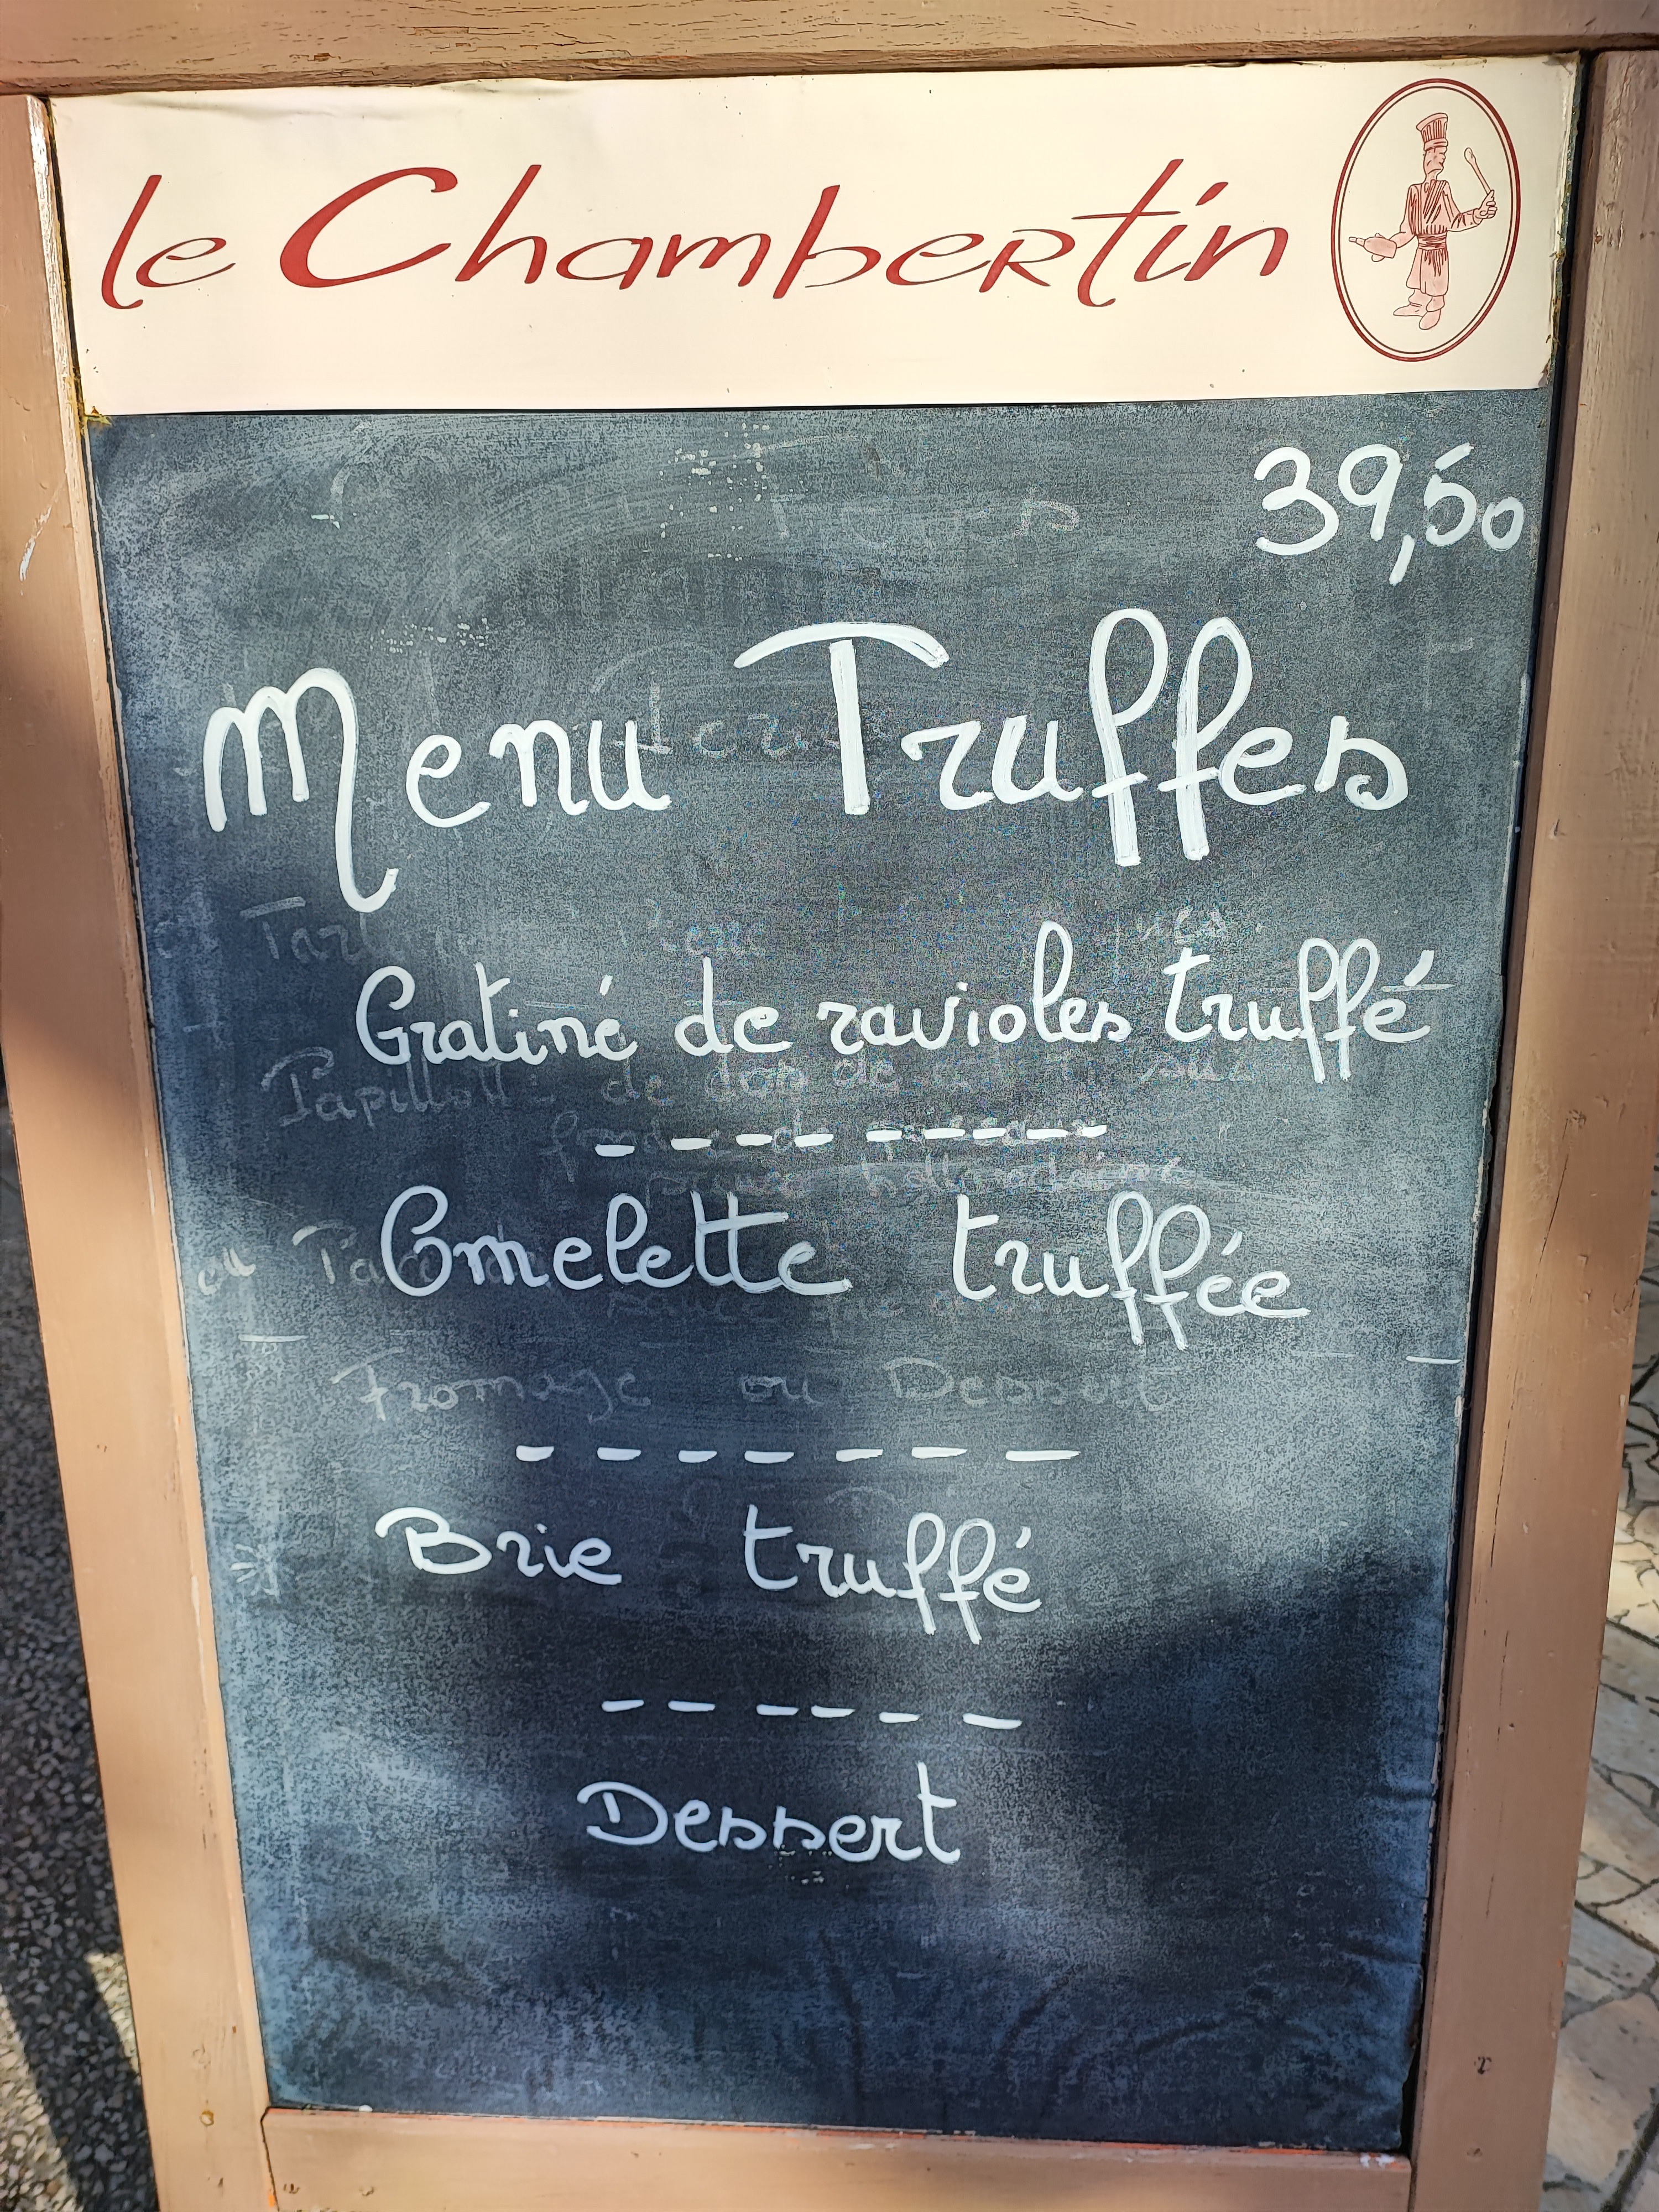 le Chambertin
39,50
Menu Truffes
Gratiné de ravioles truffé
Omelette truffée
Brie truffé
Fromage ou Dessert
Dessert